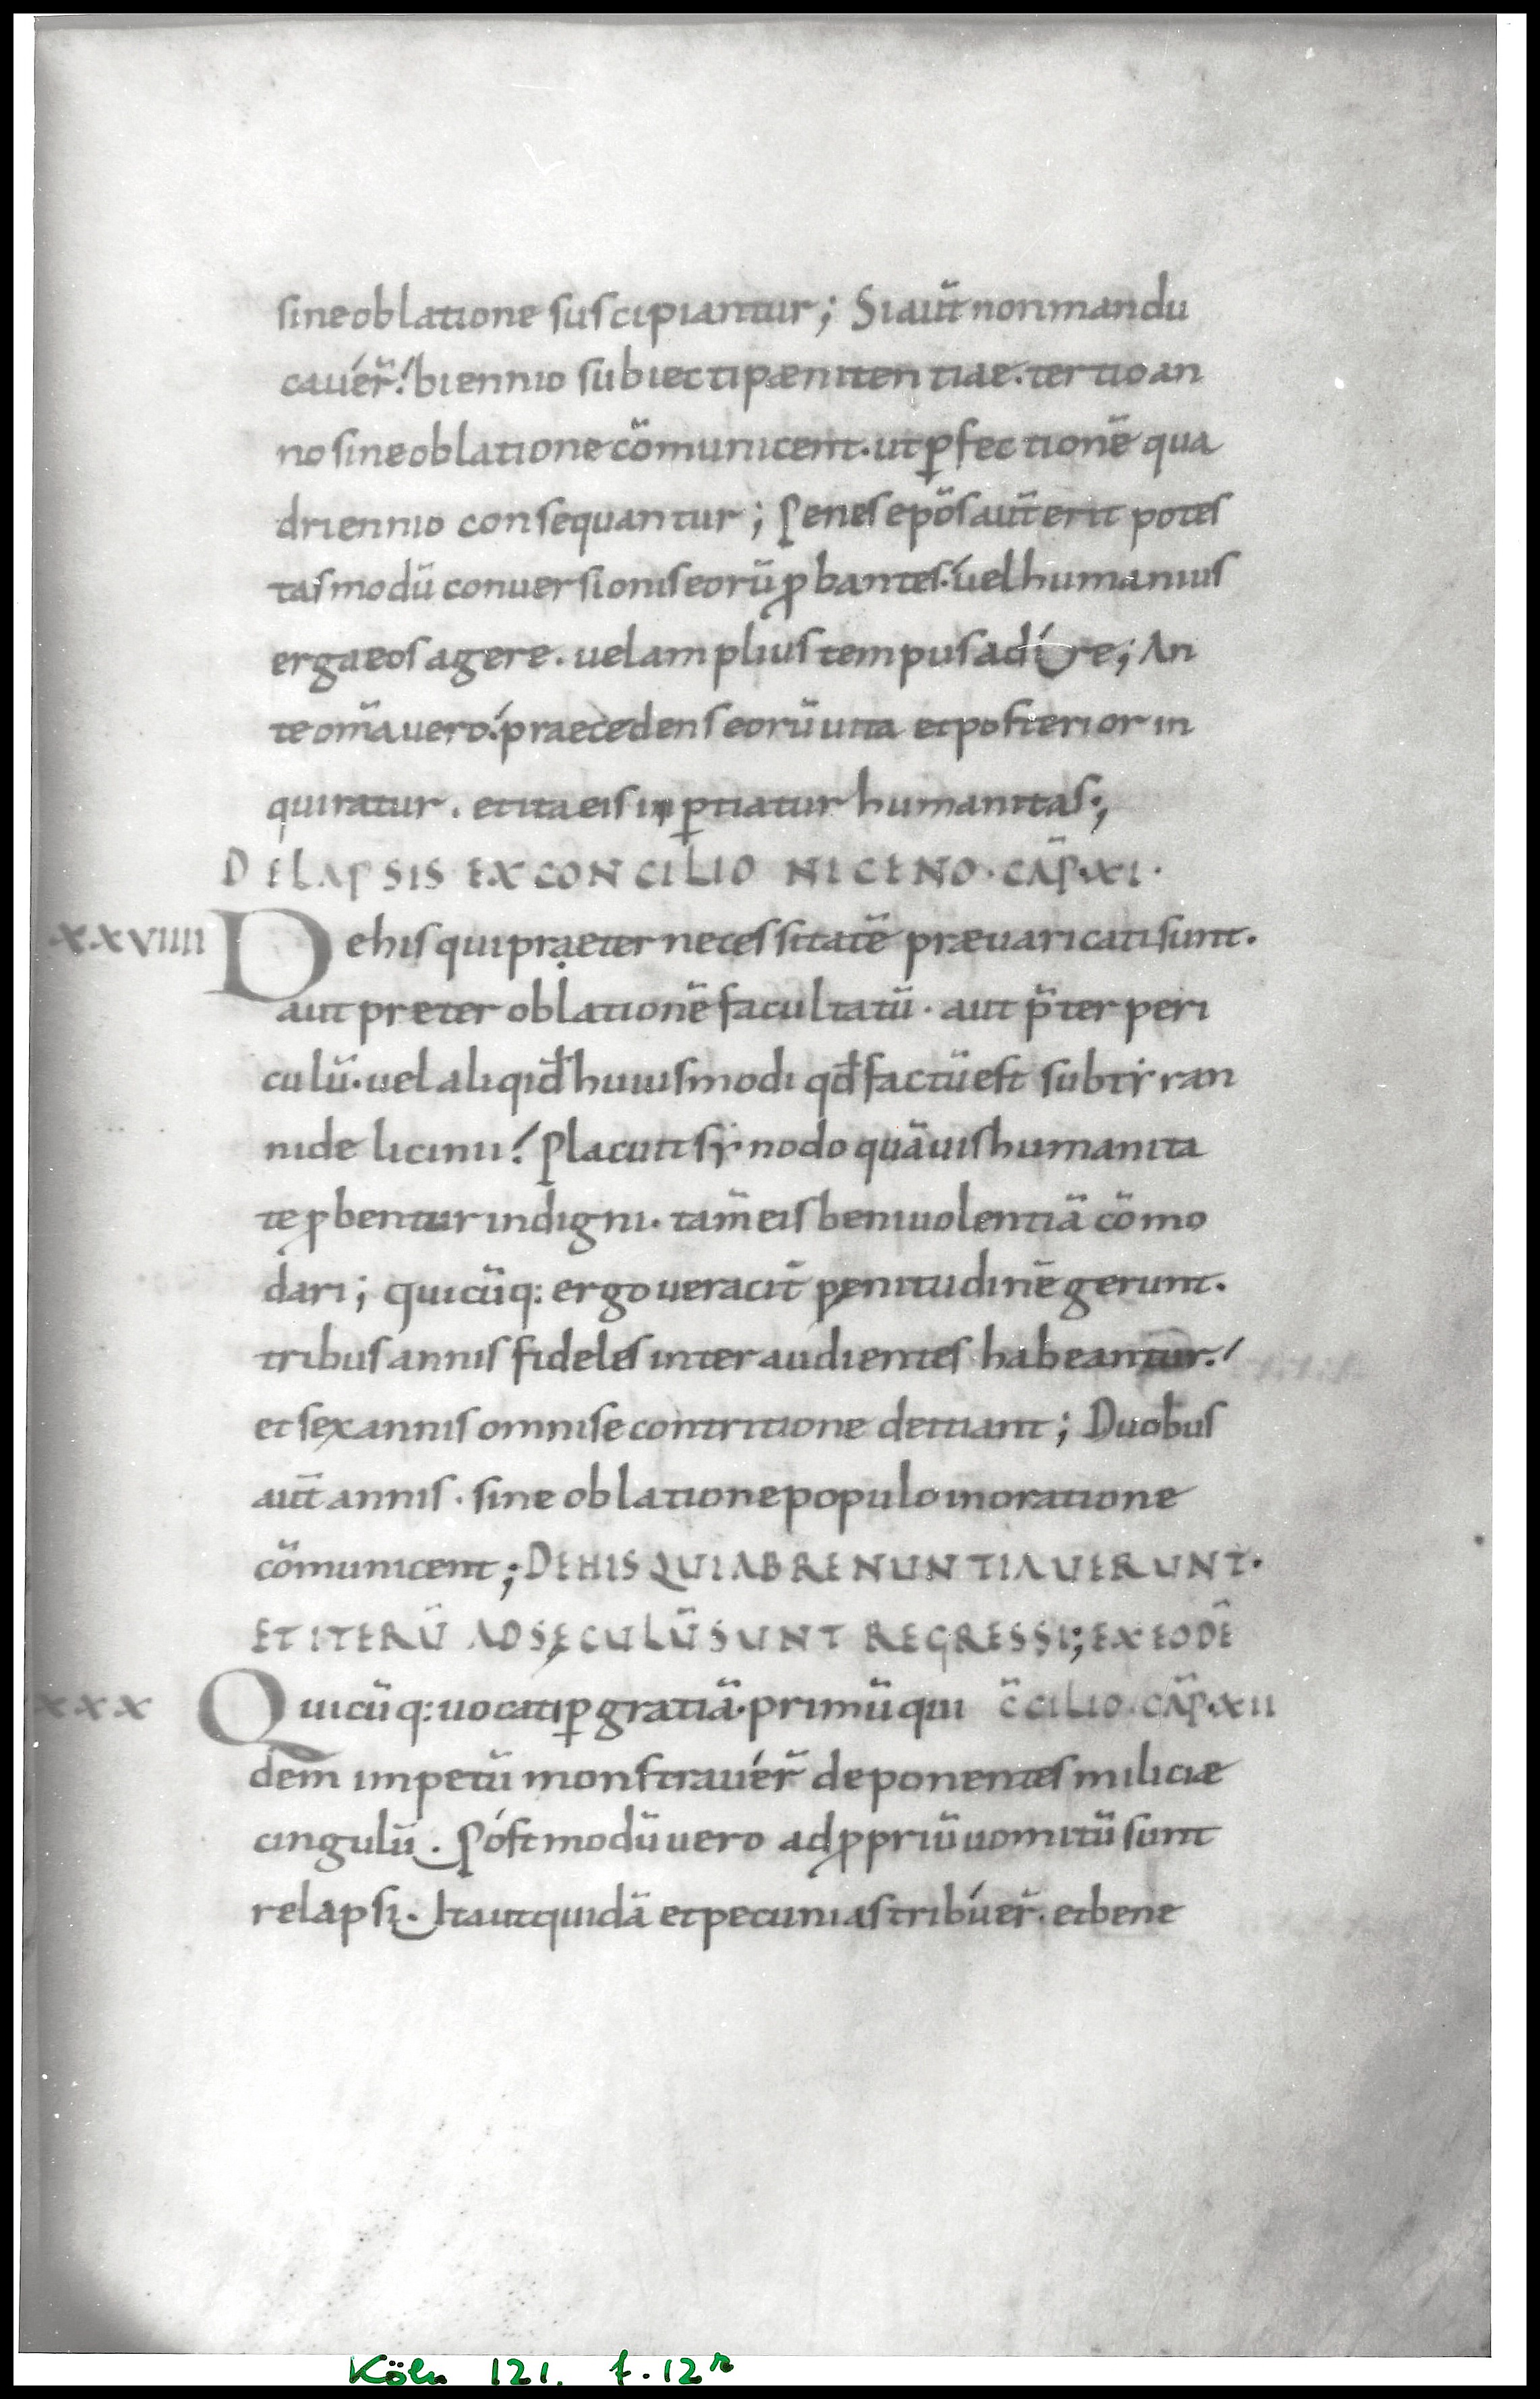 sine oblatione suscipiantur; Si aut̄ non mandu
cauér̄. biennio subiecti pæniten tiae. tertio an
no sine oblatione cōmunicent. ut ꝑfectionē qua
driennio consequantur; Penes ep̄os aut̄ erit potes
tas modū conuersionis eorū ꝓbantes. uel humanius
erga eos agere. uel amplius tempus ad re; An
te om̄a uero. praecedens eorū uita et posterior in
quiratur. et ita eis inꝑtiatur humanitas;
DE LAPSIS EX CONCILIO NICENO. CAP̄. XI.
XXVIIII De his qui praeter necessitatē præuaricati sunt.
aut preter oblationē facultatū. aut p̄ter peri
culū. uel aliqid̄ huiusmodi qd̄ factū est sub tẏran
nide licinii! Placuit sẏnodo quāuis humanita
te ꝓbentur indigni. tam̄ eis beniuolentiā cōmo
dari; quicūq: ergo ueracit̄ pęnitudinē gerunt.
tribus annis fideles inter audientes habeantur.
et sex annis omni se contritione deiciant; Duobus
aut̄ annis. sine oblatione populo in oratione
cōmunicent; DE HIS QUI ABRENUNTIAUERUNT.
ET ITERŪ AD SĘCULŪ SUNT REGRESSI; EX EODĒ
XXX Quicūq: uocati ꝑ gratiā. primū qui c̄CILIO. CAP̄. XII
dem̄ impetū monstrauér̄ deponentes miliciæ
cingulū. Póst modū uero ad ꝓpriū uomitū sunt
relapsi. Ita ut quidā et pecunias tribúer̄. et bene
Köln 121. f. 12r